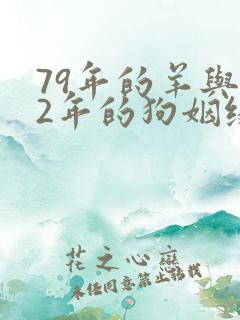 79年的羊與
2年的狗姻緣
花之心靡
未经同意禁止转载